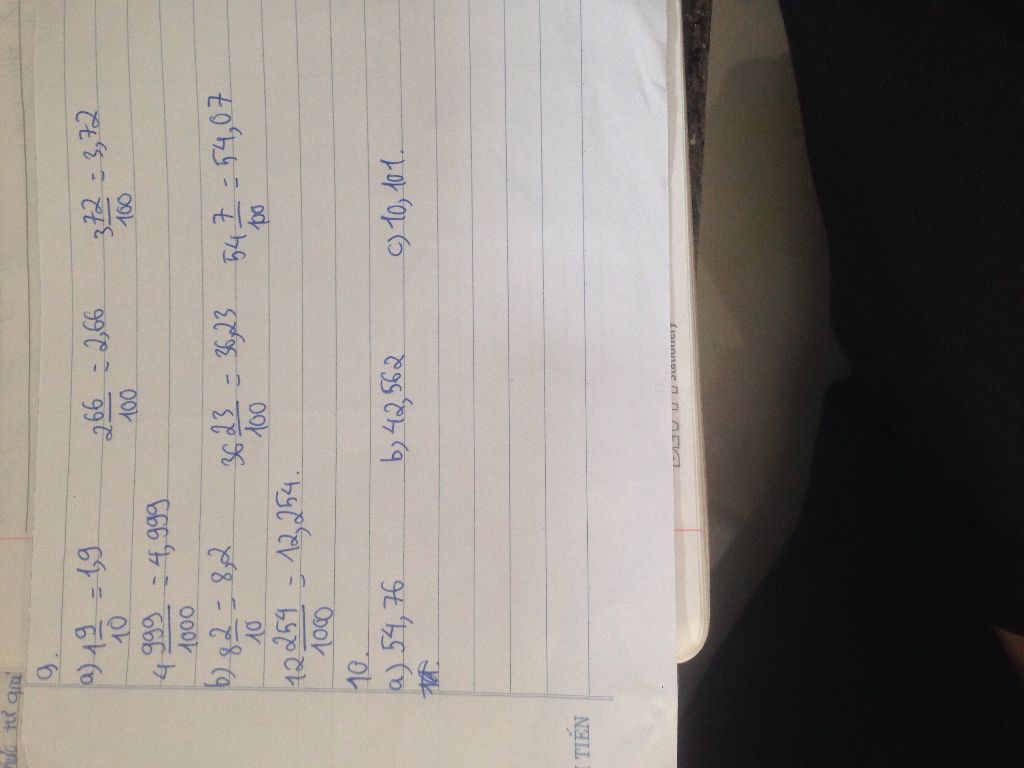 9.
a) 1 9/10 = 1,9   2 66/100 = 2,66   3 72/100 = 3,72
4 999/1000 = 4,999
b) 8 2/10 = 8,2   36 23/100 = 36,23   54 7/100 = 54,07
12 254/1000 = 12,254.
10.
a) 54,76   b) 42,562   c) 10,101.
TIẾN